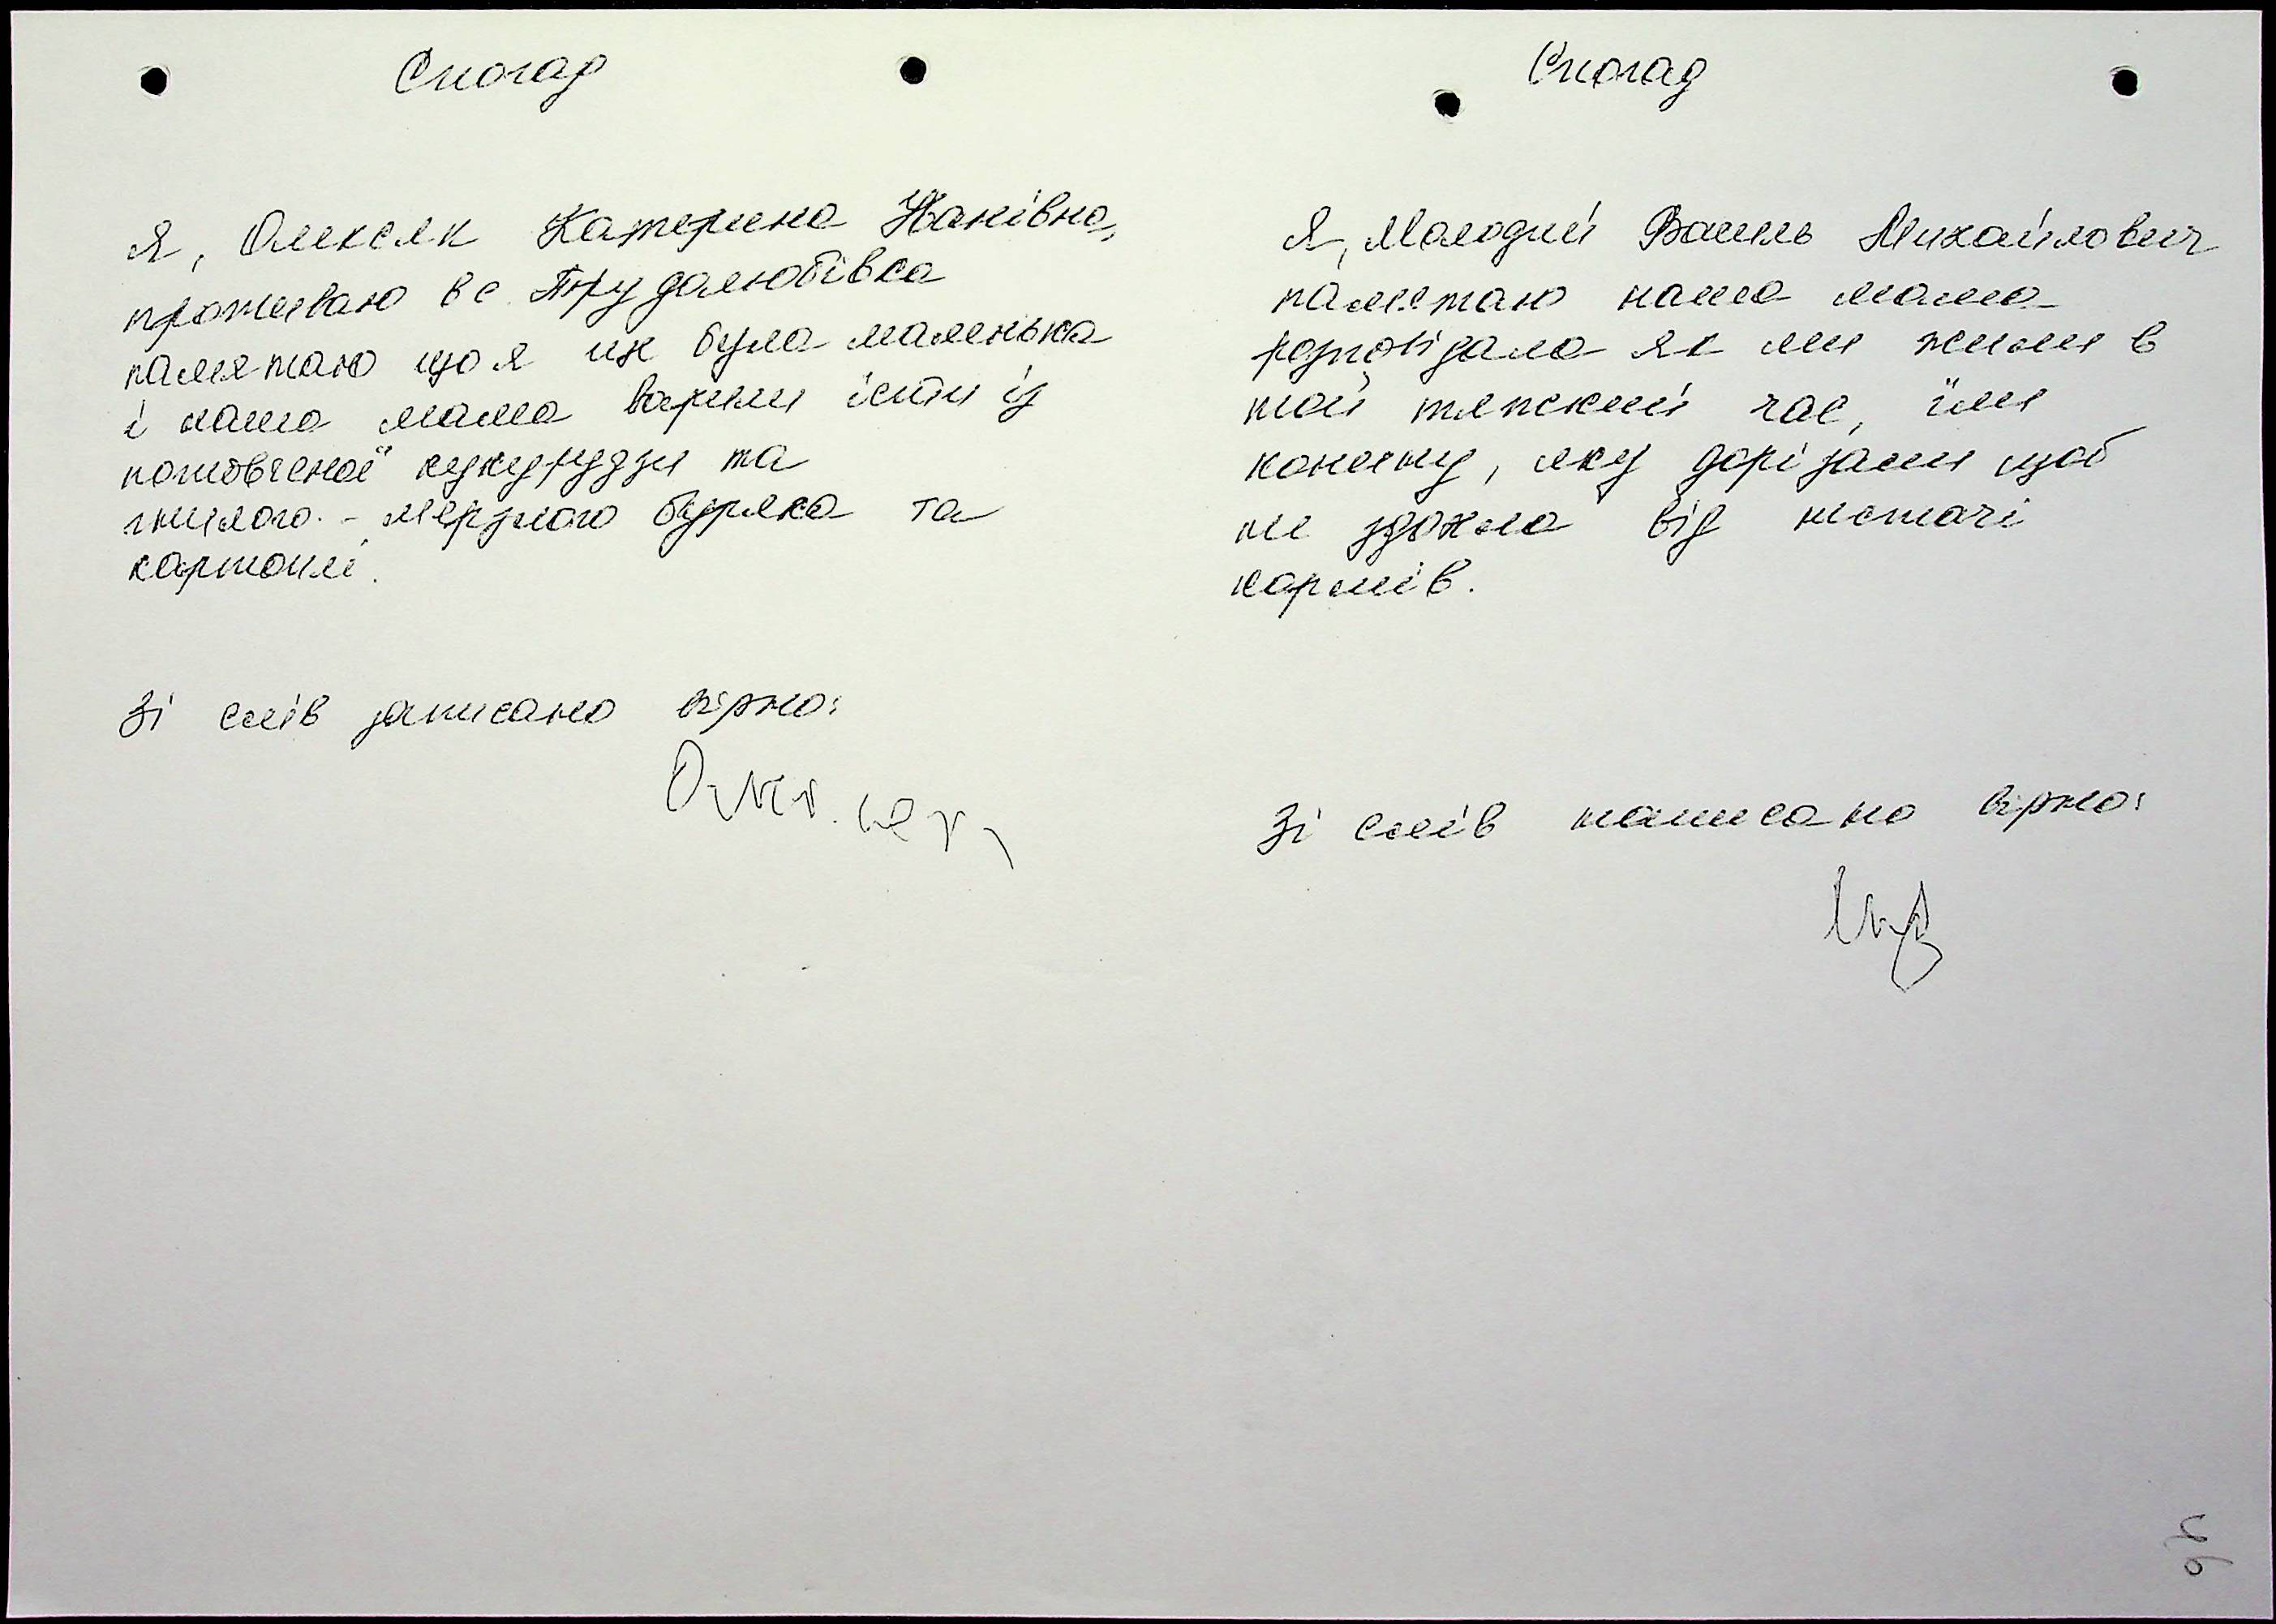 Спогад
Я, Олексяк Катерина Іванівна,
проживаю в с. Трудолюбівка
памятаю що я ще була маленька
і наша мама варили їсти із
потовченої кукурудзи та
гнилого - мерзлого буряка та
картоплі.
Зі слів записано вірно:
Спогад
Я, Молодий Василь Михайлович
памятаю наша мама
розповідала як ми жили в
той тяжский час, їли
конину, яку дорізали щоб
не здохла від нестачі
кормів.
Зі слів написано вірно: